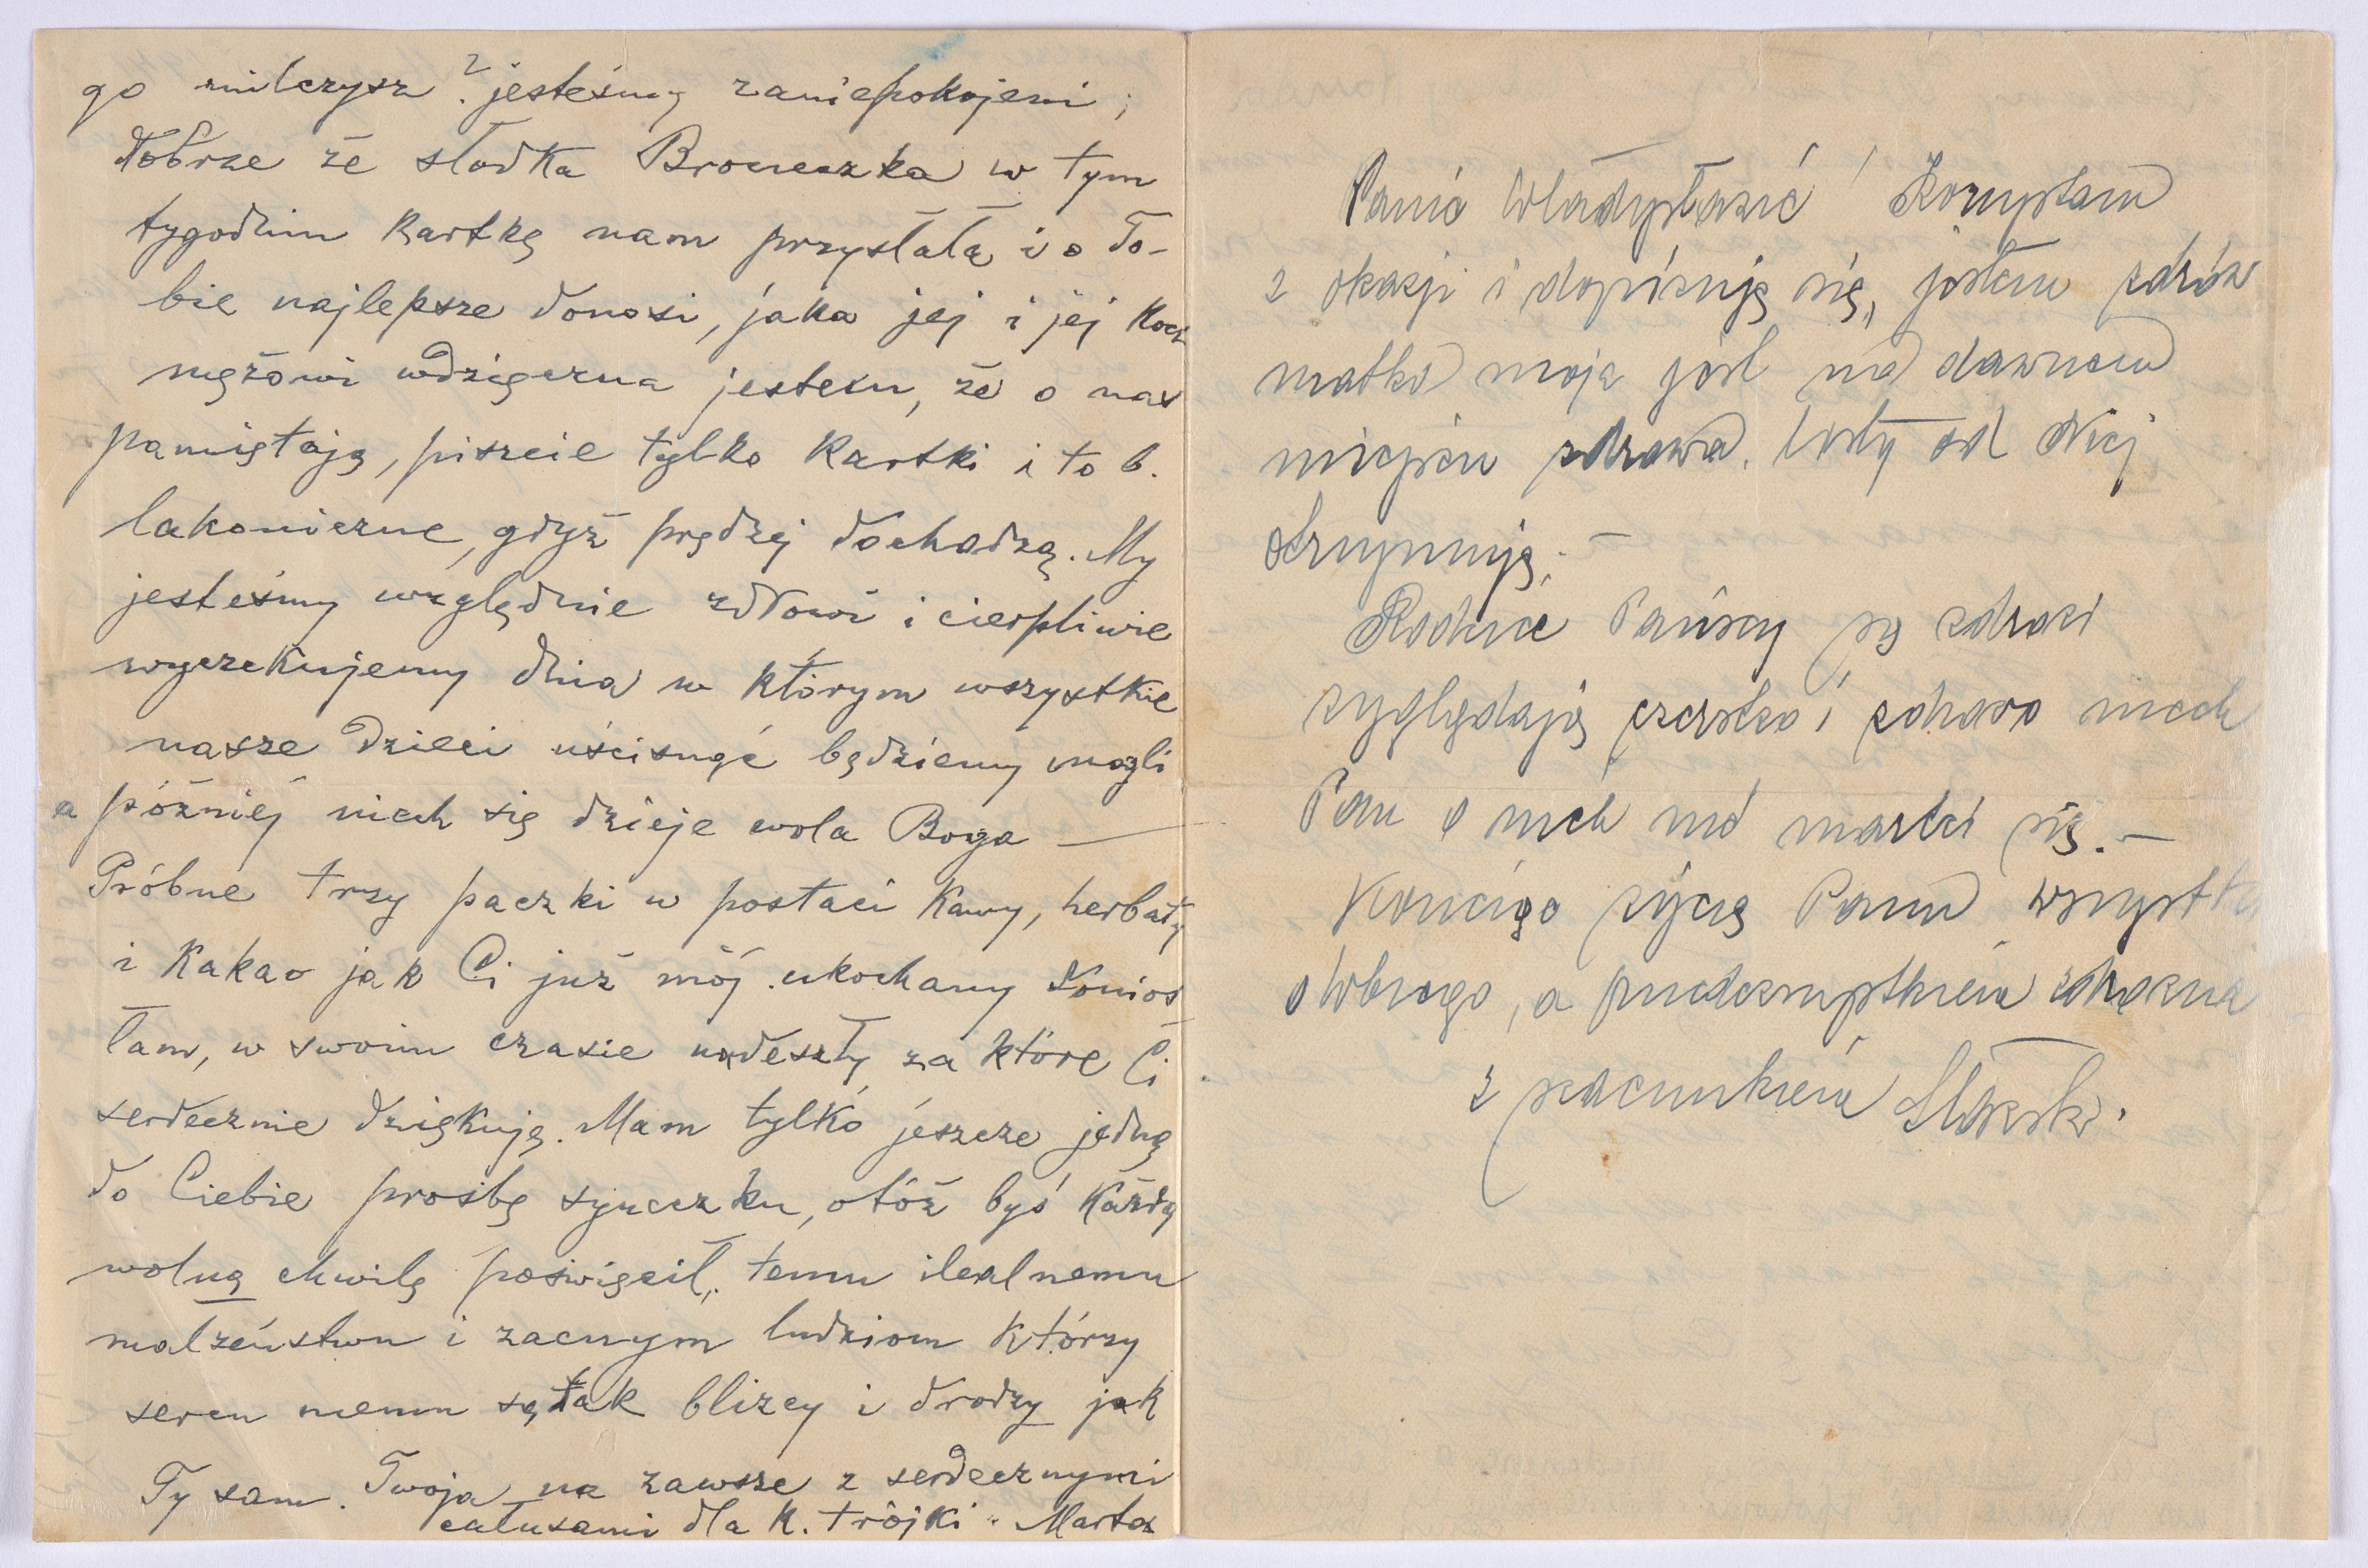 go milczysz? jesteśmy zaniepokojeni;
dobrze że słodka Broneczka w tym
tygodniu kartkę nam przysłała i o To-
bie najlepsze donosi, jaka jej i jej koch
mężowi wdzięczna jestem, że o nas
pamiętają, piszcie tylko kartki i to b.
lakoniczne, gdyż prędzej dochodzą. My
jesteśmy względnie zdrowi i cierpliwie
wyczekujemy dnia w którym wszystkie
nasze dzieci uścisnąć będziemy mogli
a później niech się dzieje wola Boga —
Próbne trzy paczki w postaci kawy, herbaty
i kakao jak Ci już mój ukochany donios
łam, w swoim czasie nadeszły za które Ci
serdecznie dziękuję. Mam tylko jeszcze jedną
do Ciebie prośbę syneczku, otóż byś każdą
wolną chwilę poświęcił, temu idealnemu
małżeństwu i zacnym ludziom którzy
sercu memu są tak blizcy i drodzy jak
Ty sam. Twoja na zawsze z serdecznymi
całusami dla k. trójki. Marta
Panie Władysławie! Korzystam
z okazji i dopisuję się, jestem zdrów
matka moja jest na dawnem
miejscu zdrowa. Listy od Niej
otrzymuję. —
Rodzice Pańscy są zdrowi
wyglądają czerstwo i zdrowo niech
Pan o nich nie martwi się. —
Kończąc życzę Panu wszystk
dobrego, a przedewszystkiem zdrowia
z szacunkiem